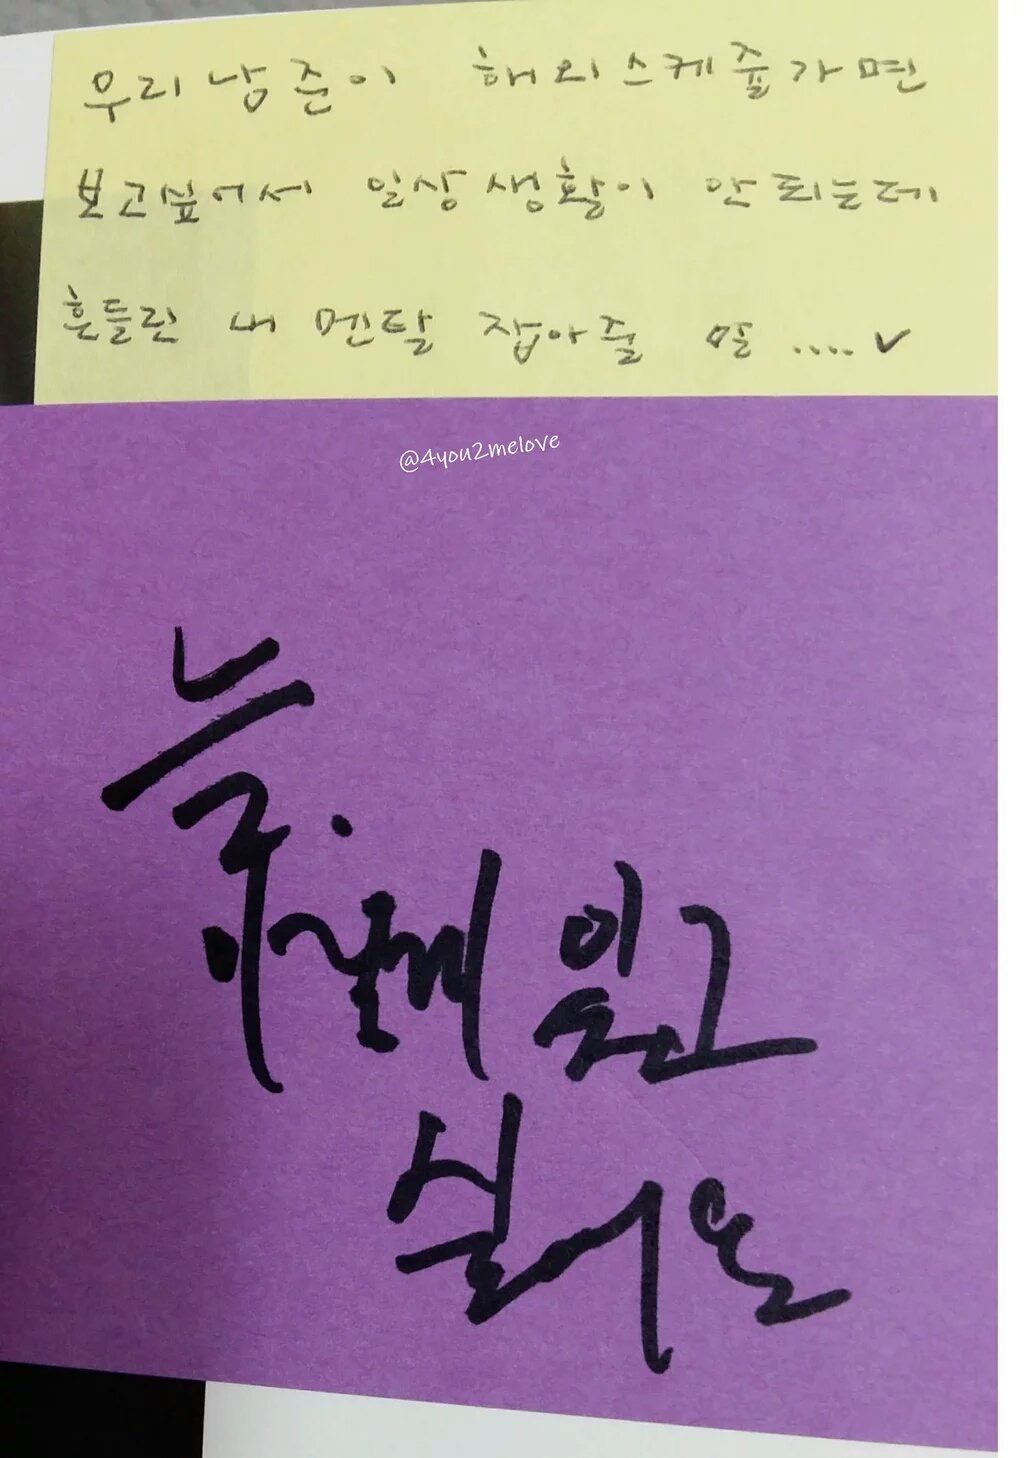 우리 남준이 해외스케줄가면
보고싶어서 일상생활이 안되는데
흔들린 내 멘탈 잡아줄 말 .... ✓
@4you2melove
늘.
함께 있고
싶어요